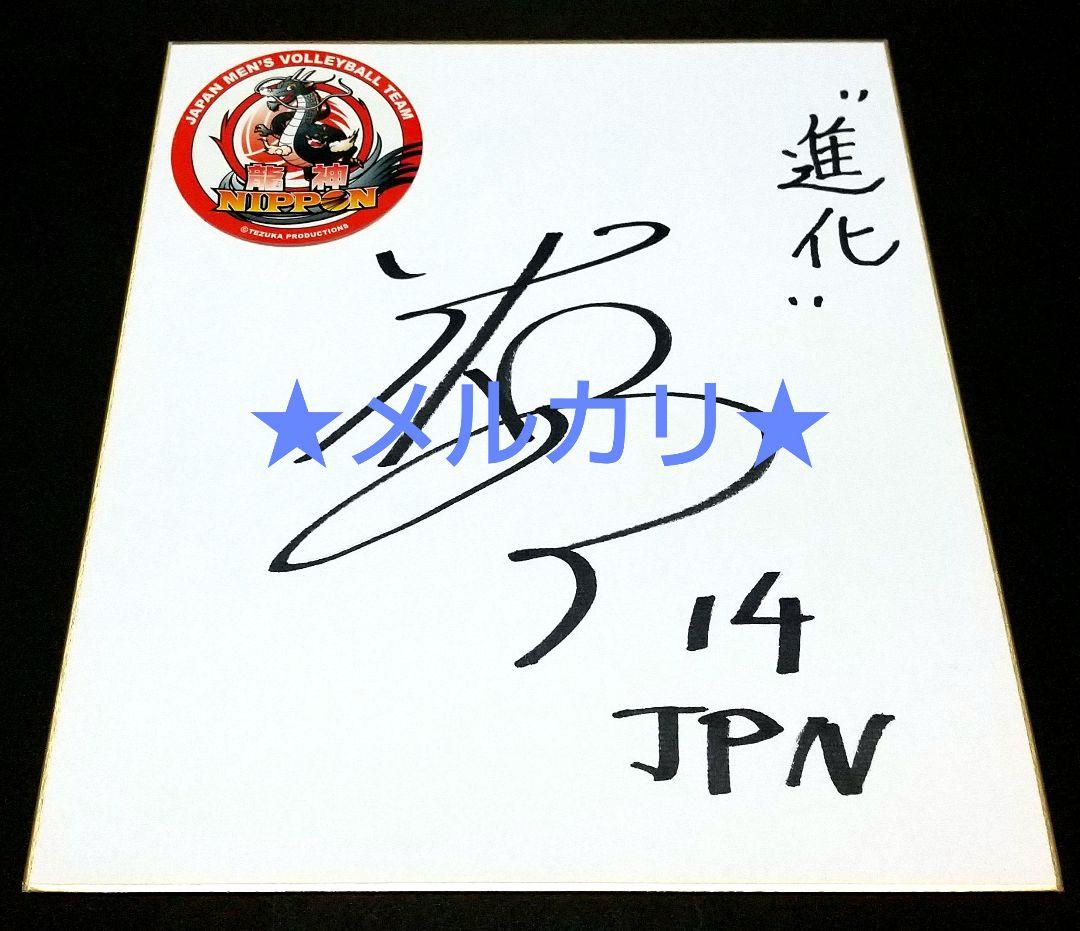 JAPAN MEN'S VOLLEYBALL TEAM
龍神
NIPPON
©TEZUKA PRODUCTIONS
"進化"
★メルカリ★
14
JPN